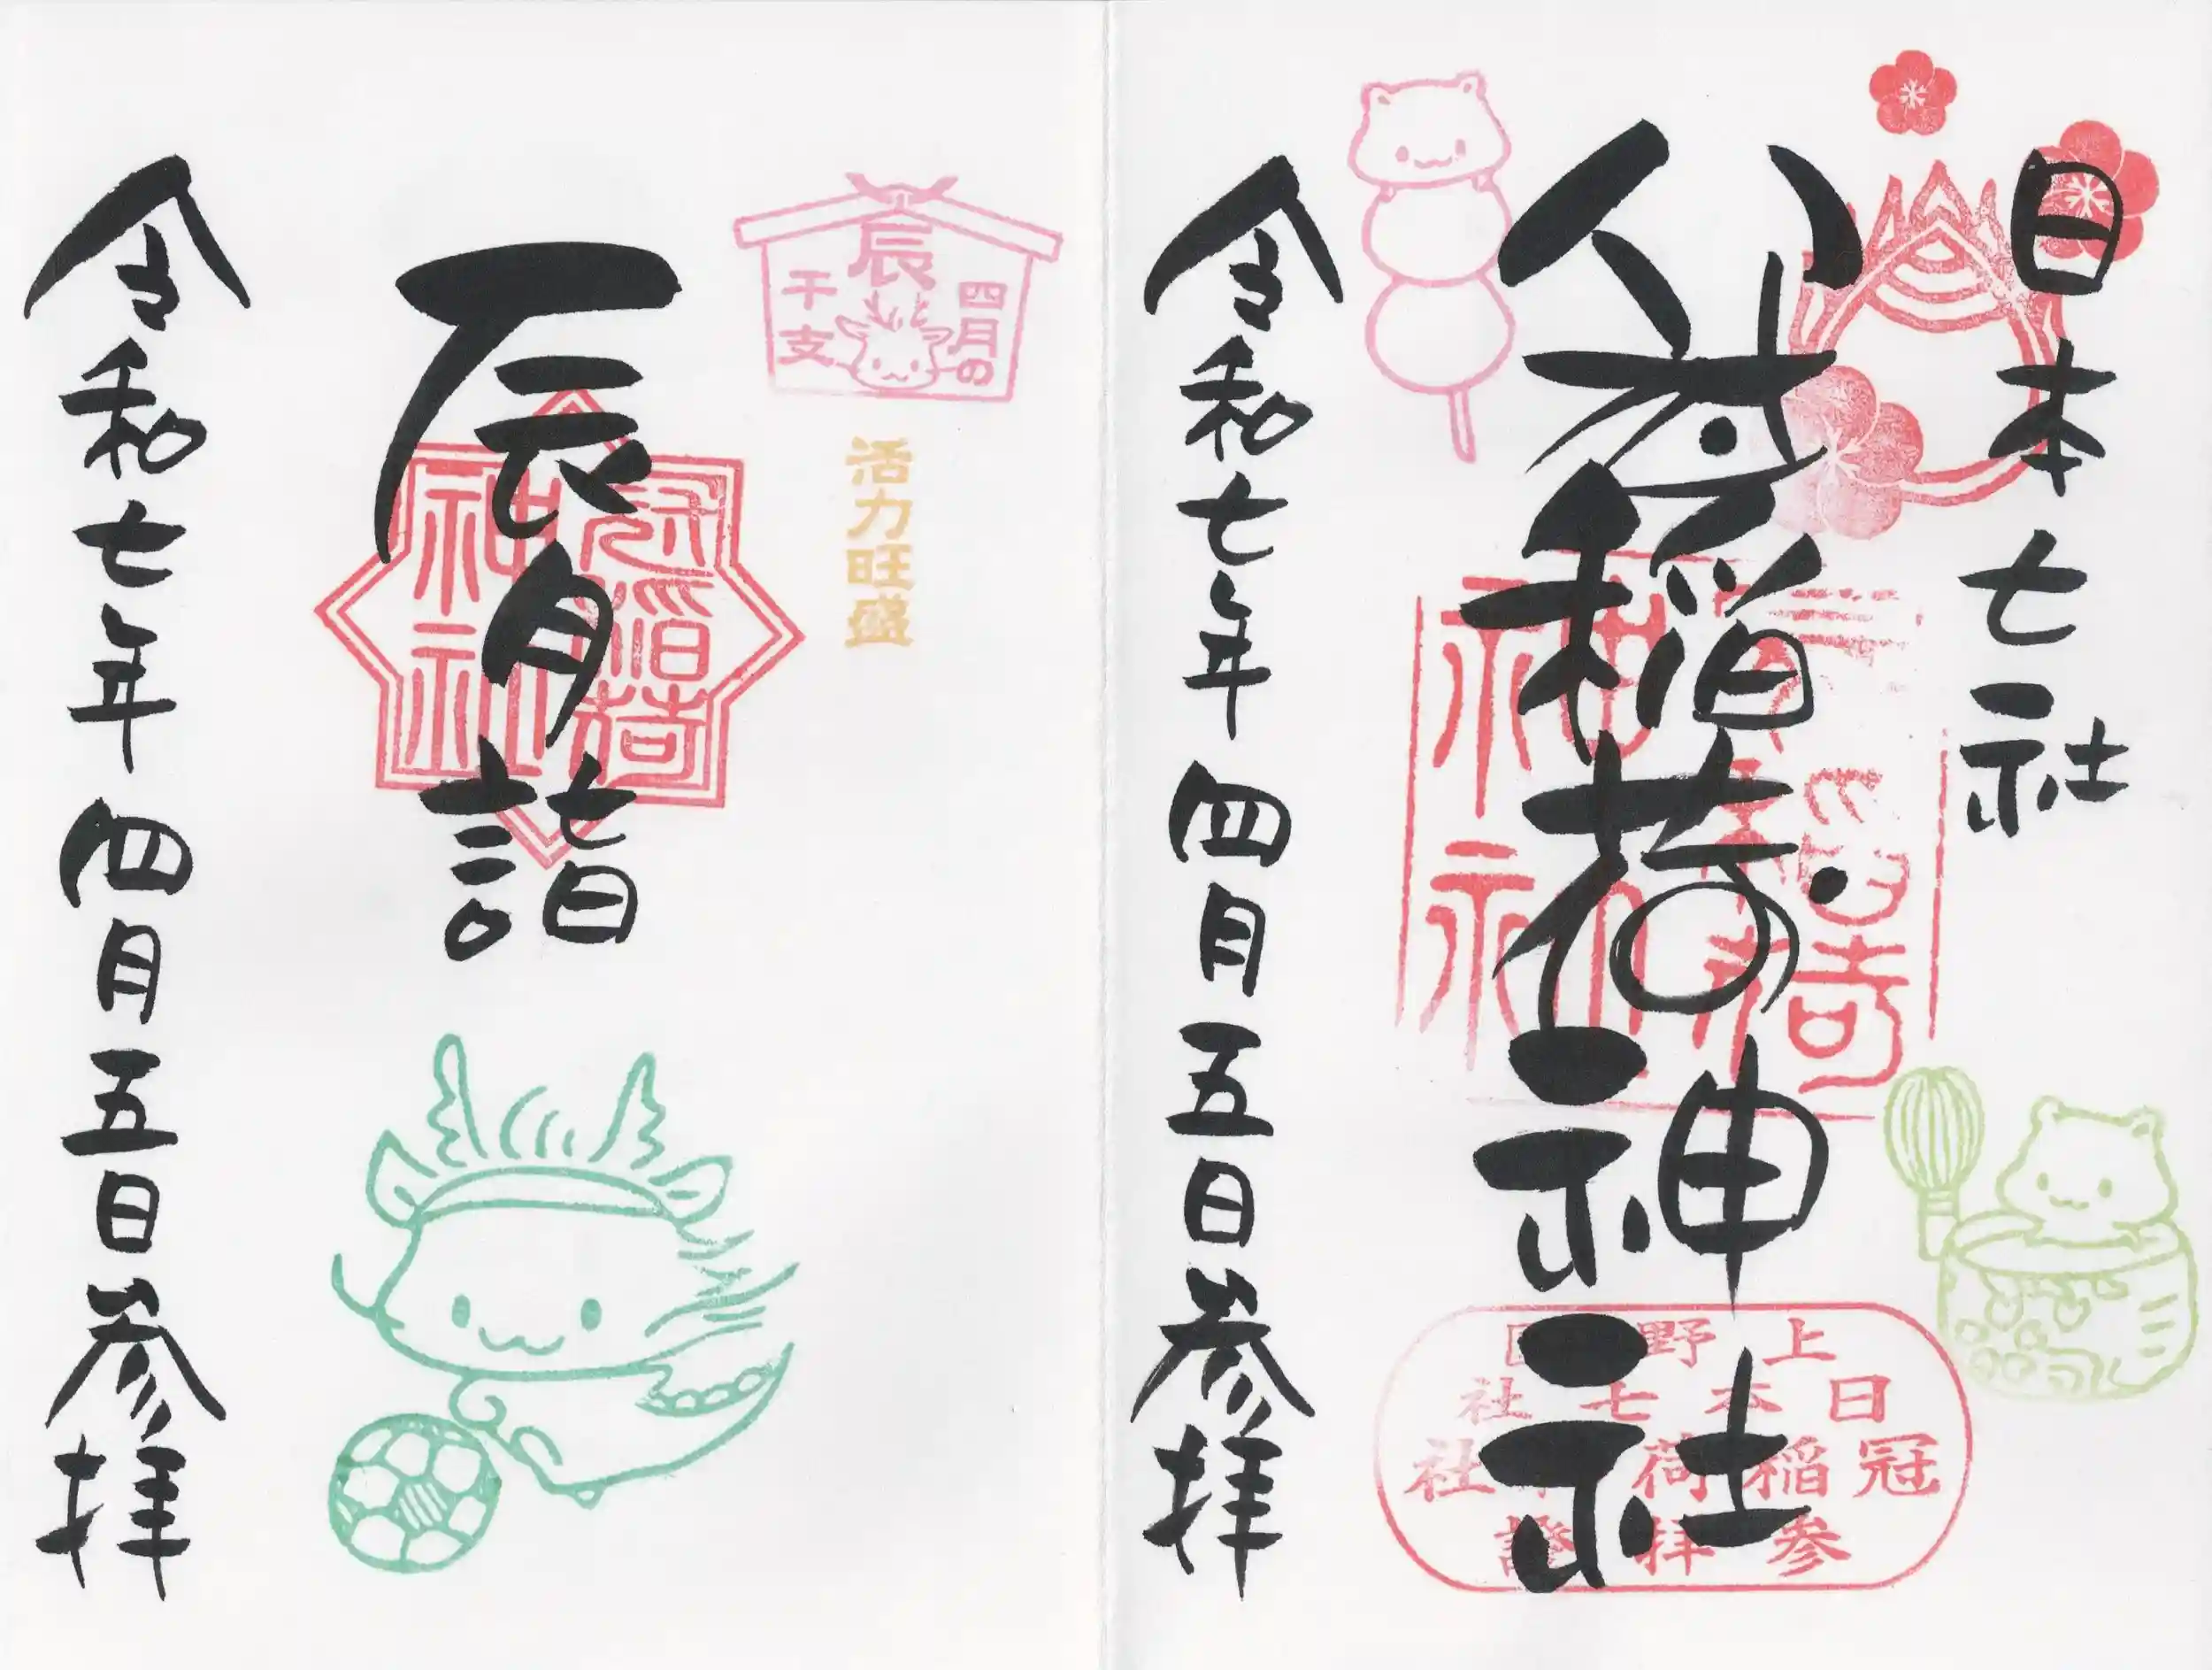 日本七社
冠稲荷神社
冠稲荷
神社
上野國
日本七社
冠稲荷神社
参拝證
令和七年四月五日参拝
四月の
辰
干支
活力旺盛
辰月詣
冠稲荷
神社
令和七年四月五日参拝